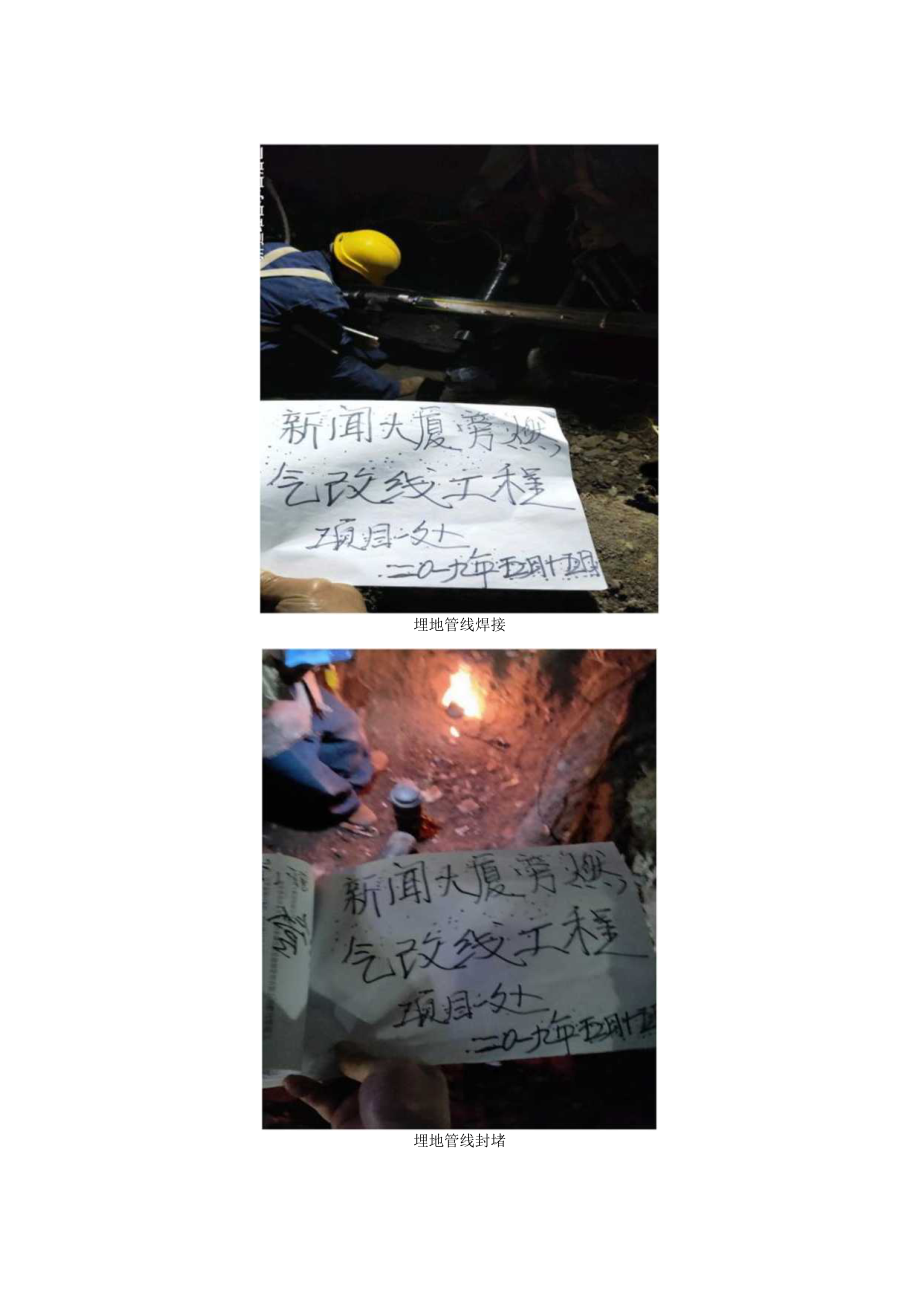 新闻大厦旁燃
气改线工程
项目一处
二〇一九年五月十五日
埋地管线焊接
新闻大厦旁燃
气改线工程
项目一处
二〇一九年五月十五
埋地管线封堵